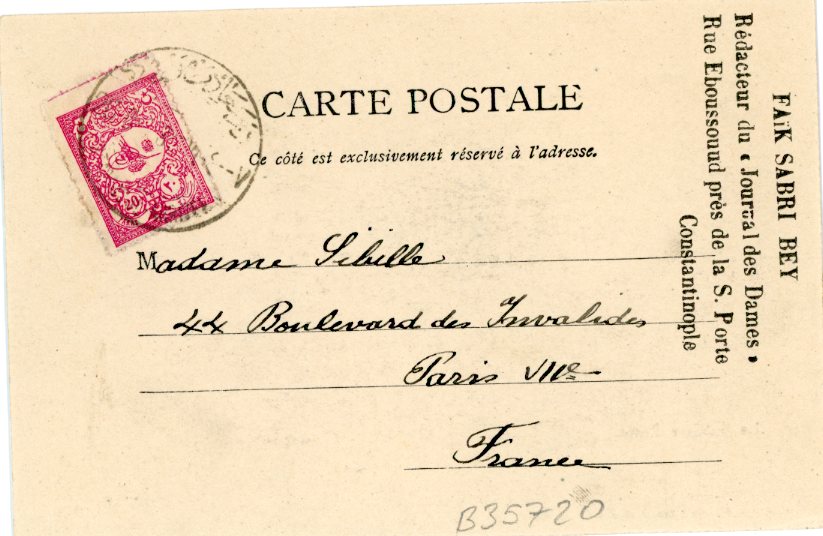 CARTE POSTALE
Ce côté est exclusivement réservé à l'adresse.
Madame Sibille
44 Boulevard des Invalides
Paris VIIe
France
FAïK SABRI BEY
Rédacteur du « Journal des Dames »
Rue Eboussoud près de la S. Porte
Constantinople
20
٢٠
B35720